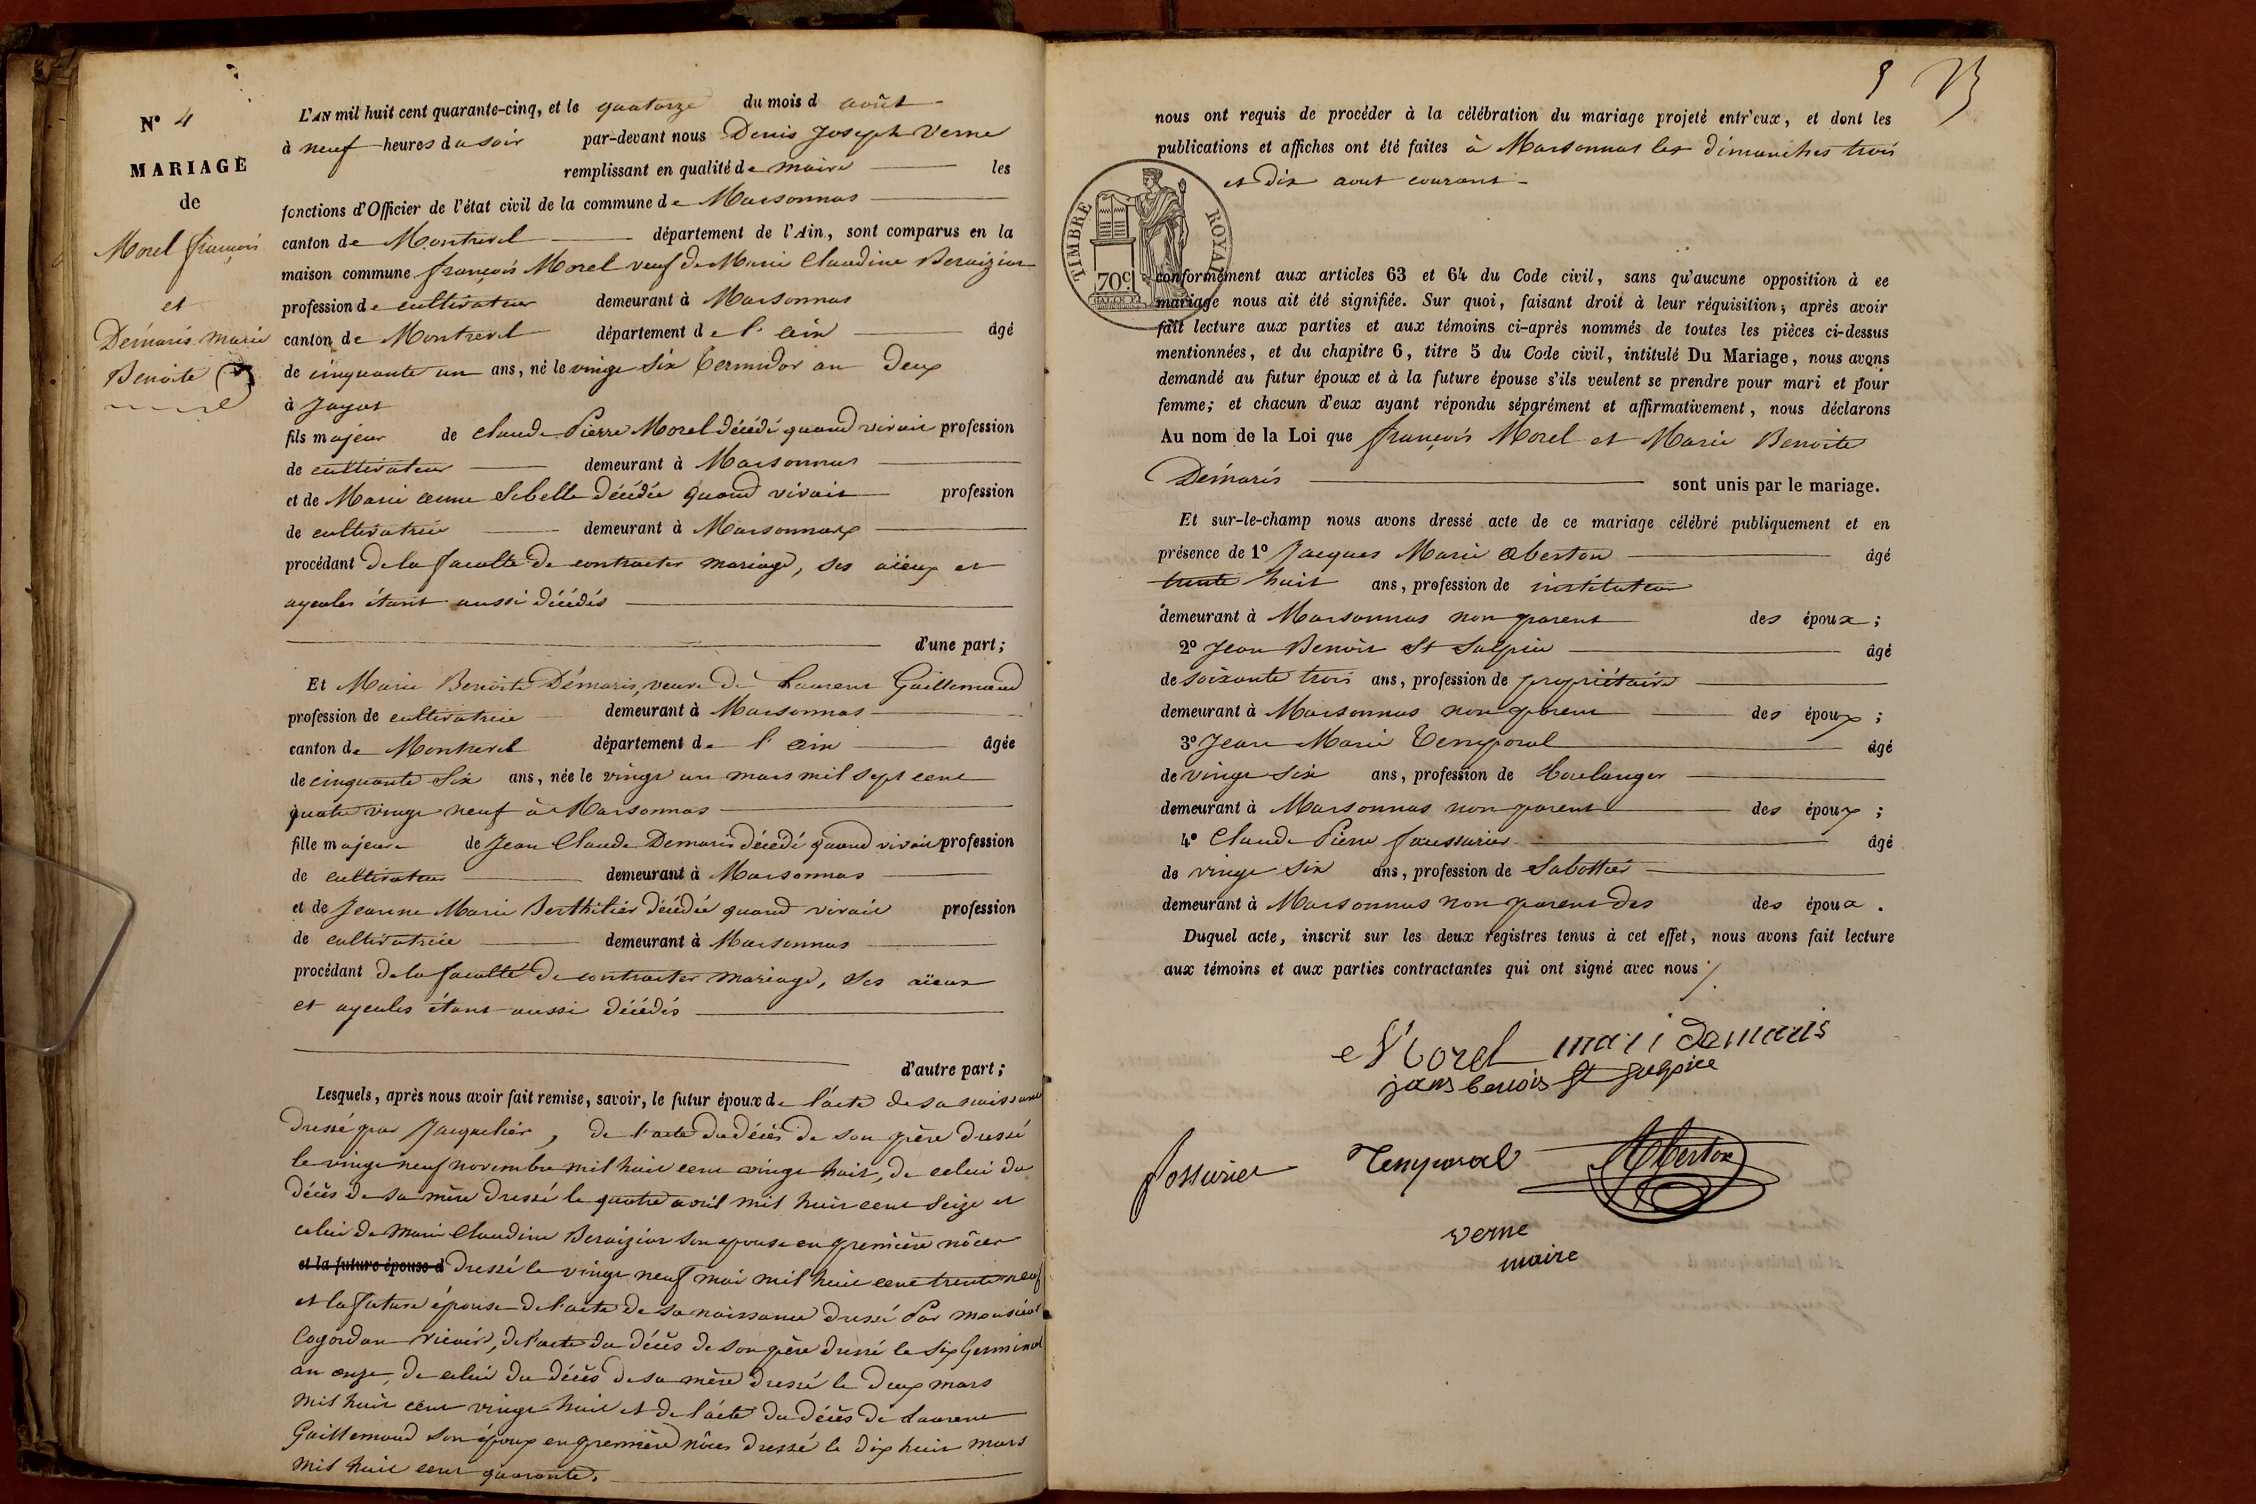 N° 4
MARIAGE
de
Morel françois
et
Démaris marie
Benoite
L'AN mil huit cent quarante-cinq, et le quatorze du mois d août
à neuf heures du soir par-devant nous Denis Joseph Verne
remplissant en qualité de maire les
fonctions d'Officier de l'état civil de la commune de Marsonnas
canton de Montrevel département de l'Ain, sont comparus en la
maison commune françois Morel veuf de Marie Claudine Beraizias
profession de cultivateur demeurant à Marsonnas
canton de Montrevel département de l'ain âgé
de cinquante un ans, né le vingt six termidor an deux
à Jayat
fils majeur de claude Pierre Morel décédé quand vivait profession
de cultivateur demeurant à Marsonnas
et de Marie anne Sibelle décédée quand vivait profession
de cultivatrice demeurant à Marsonnax
procédant de la faculté de contracter mariage, ses aïeux et
ayeules étant aussi décédés
d'une part;
Et Marie Benoite Démaris, veuve de Laurent Guillemaud
profession de cultivatrice demeurant à Marsonnas
canton de Montrevel département de l'ain âgée
de cinquante six ans, née le vingt un mars mil sept cent
quatre vingt neuf à Marsonnas
fille majeure de Jean Claude Demaris décédé quand vivait profession
de cultivateur demeurant à Marsonnas
et de Jeanne Marie Berthilier décédée quand vivait profession
de cultivatrice demeurant à Marsonnas
procédant de la faculté de contracter mariage, ses aïeux
et ayeules étant aussi décédés
d'autre part;
Lesquels, après nous avoir fait remise, savoir, le futur époux de l'acte de sa naissance
dressé par Jacquelier, de l'acte du décès de son père dressé
le vingt neuf novembre mil huit cent vingt huit, de celui du
décès de sa mère dressé le quatre avril mil huit cent seize et
celui de Marie Claudine Beraizias son épouse en première nôces
et la future épouse d dressé le vingt neuf mai mil huit cent trente neuf
et la future épouse de l'acte de sa naissance dressé Par monsieur
Cogordan vicaire, de l'acte du décès de son père dressé le six Germinal
an onze, de celui du décès de sa mère dressé le deux mars
mil huit cent vingt huit et de l'acte du décès de Laurent
Guillemaud son époux en première nôces dressé le dix huit mars
mil huit cent quarante.
5
nous ont requis de procéder à la célébration du mariage projeté entr'eux, et dont les
publications et affiches ont été faites à Marsonnas les dimanches trois
et dix aout courant
TIMBRE ROYAL
70c
conformément aux articles 63 et 64 du Code civil, sans qu'aucune opposition à ce
mariage nous ait été signifiée. Sur quoi, faisant droit à leur réquisition, après avoir
fait lecture aux parties et aux témoins ci-après nommés de toutes les pièces ci-dessus
mentionnées, et du chapitre 6, titre 5 du Code civil, intitulé Du Mariage, nous avons
demandé au futur époux et à la future épouse s'ils veulent se prendre pour mari et pour
femme; et chacun d'eux ayant répondu séparément et affirmativement, nous déclarons
Au nom de la Loi que françois Morel et Marie Benoite
Démaris sont unis par le mariage.
Et sur-le-champ nous avons dressé acte de ce mariage célébré publiquement et en
présence de 1° Jacques Marie Aberton âgé
trente huit ans, profession de instituteur
demeurant à Marsonnas non parent des époux;
2° Jean Benoit St Sulpice âgé
de soixante trois ans, profession de propriétaire
demeurant à Marsonnas non parent des époux;
3° Jean Marie Temporal âgé
de vingt six ans, profession de boulanger
demeurant à Marsonnas non parent des époux;
4° Claude Pierre foussurier âgé
de vingt six ans, profession de Sabottier
demeurant à Marsonnas non parent des des époux.
Duquel acte, inscrit sur les deux registres tenus à cet effet, nous avons fait lecture
aux témoins et aux parties contractantes qui ont signé avec nous
Morel mari demaris
jean benois St sulpice
fossurier Temporal Aberton
verne
maire